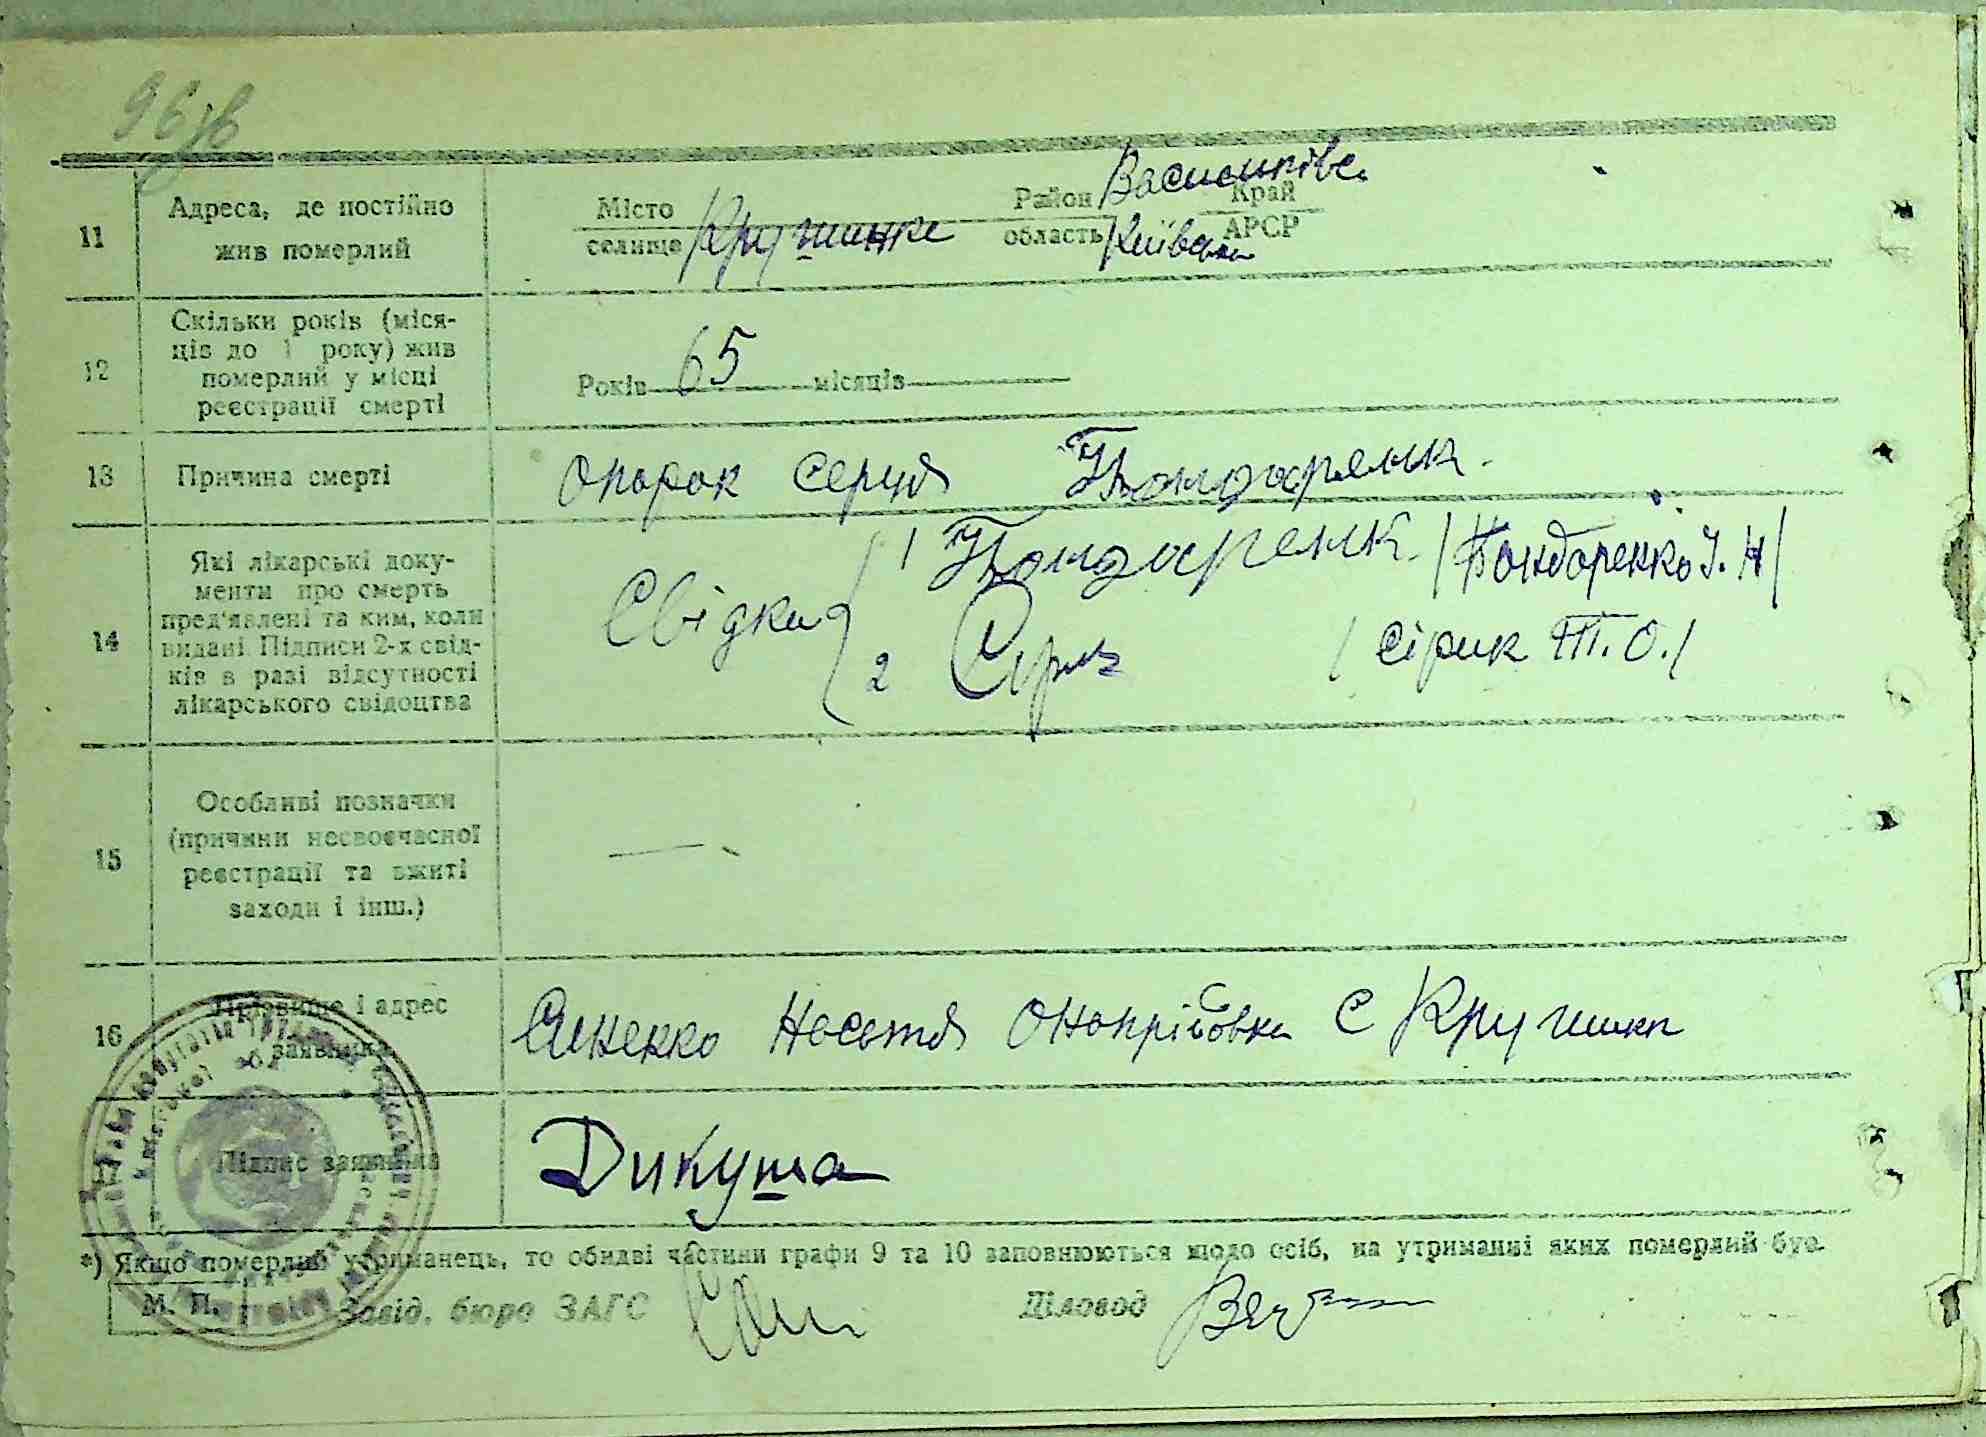 96
11 Адреса, де постійно жив померлий
Місто селище Кругшинке Район Васильківс. область Київська Край АРСР
12 Скільки років (міся-
ців до 1 року) жив
померлий у місці
реєстрації смерті
Років 65 місяців
13 Причина смерті
опорок серця Бондаренк.
14 Які лікарські доку-
менти про смерть
пред'явлені та ким, коли
видані Підписи 2-х свід-
ків в разі відсутності
лікарського свідоцтва
Свідки 1 Бондаренк. /Бондаренко І. Н/
2 Сірик / Сірик Т. О. /
15 Особливі позначки
(причини несвоєчасної
реєстрації та вжиті
заходи і інш.)
16 Прізвище і адрес
заявника
Синенко Настя Онопріївна с
17 Підпис заявника
Дикуша
*) Якщо померлий утриманець, то обидві частини графи 9 та 10 заповнюються щодо осіб, на утриманні яких померлий був.
М. П. Завід. бюро ЗАГС Діловод